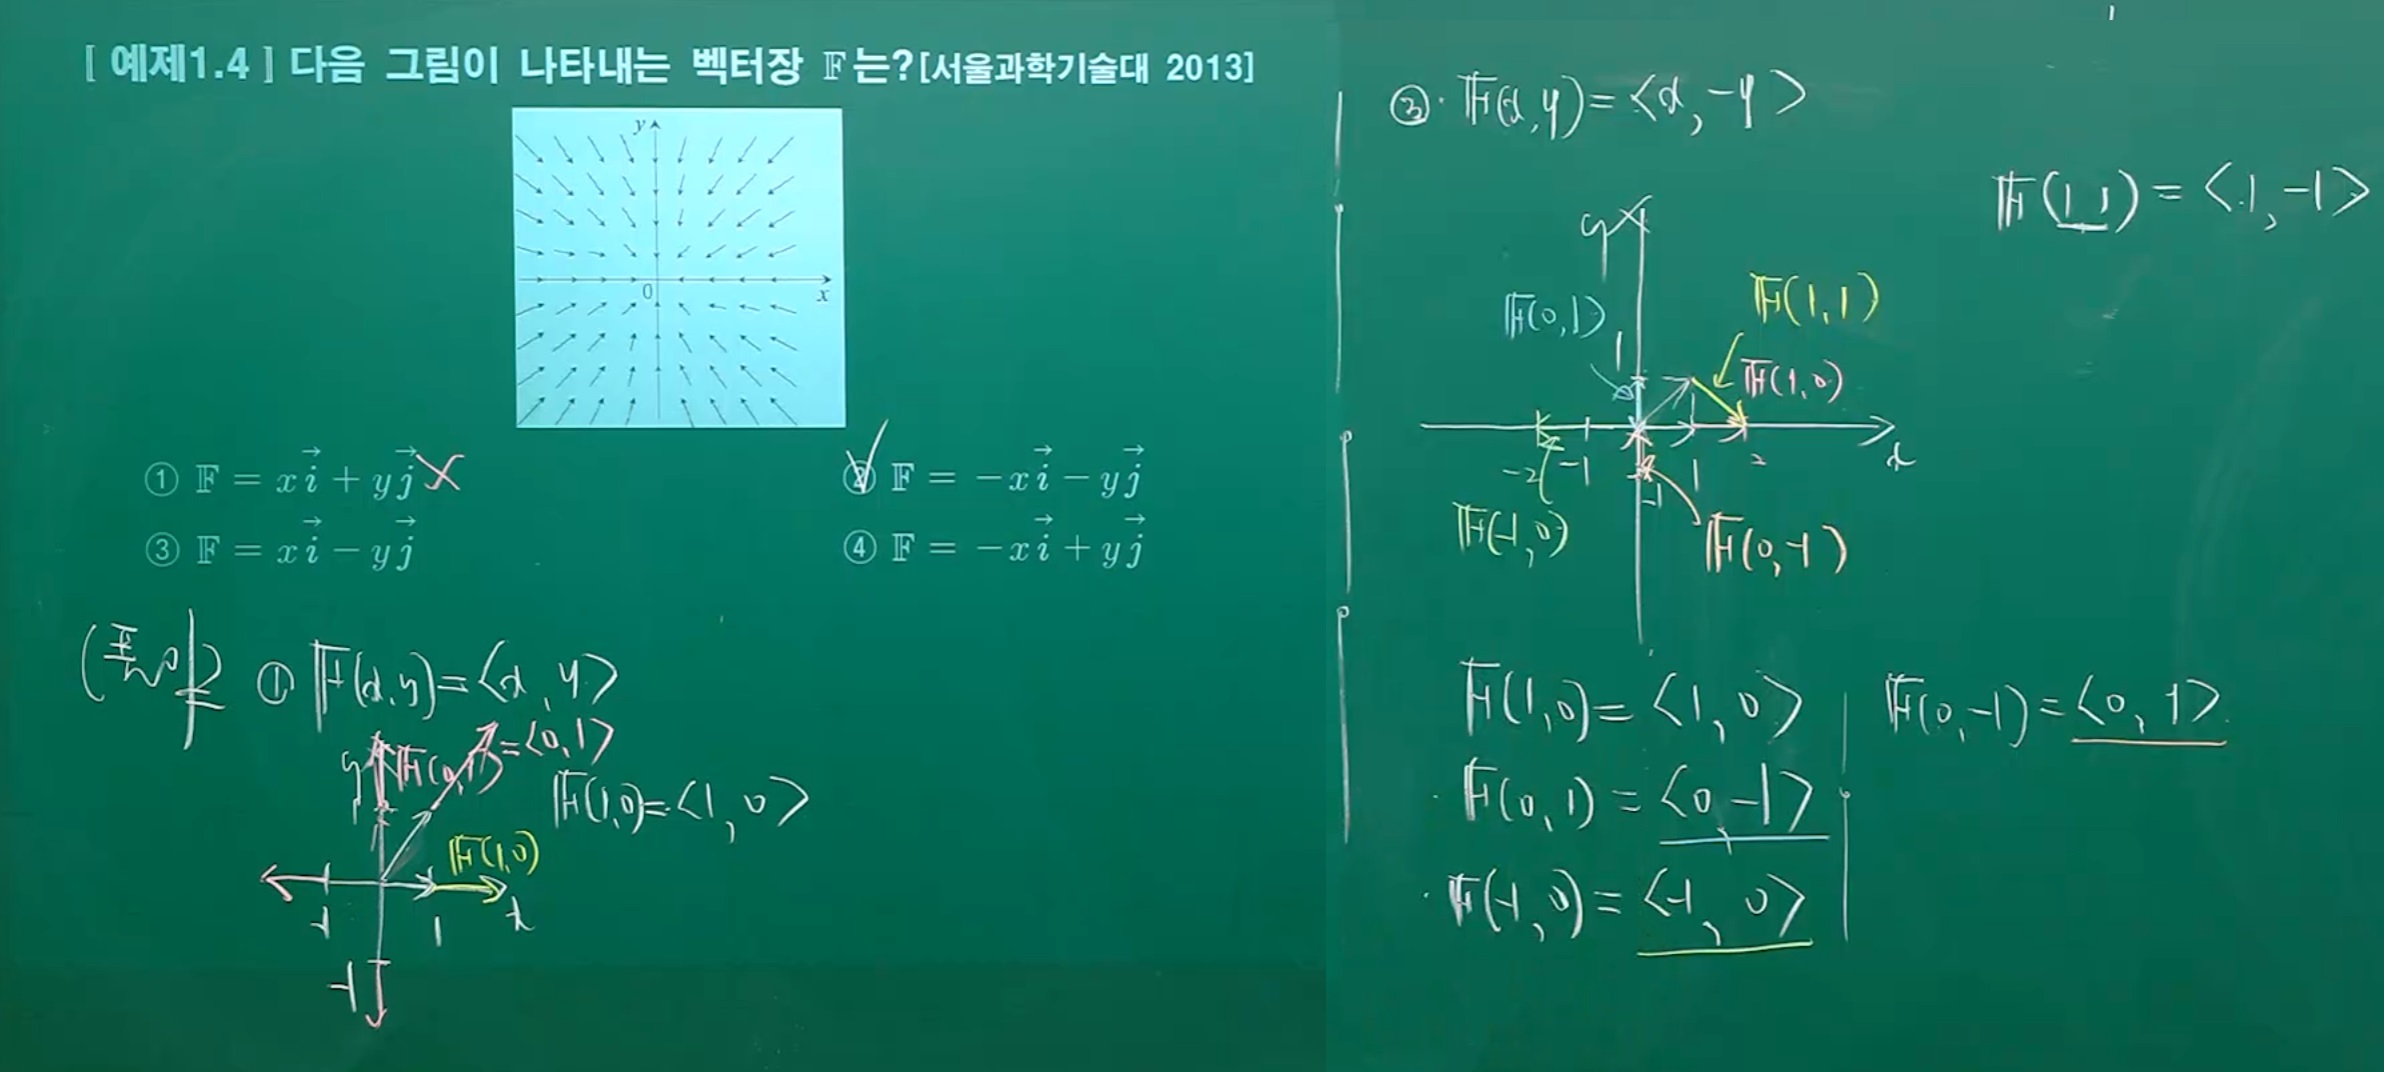 [ 예제1.4 ] 다음 그림이 나타내는 벡터장 𝔽는?[서울과학기술대 2013]
y
0
x
① 𝔽 = x i⃗ + y j⃗
② 𝔽 = −x i⃗ − y j⃗
③ 𝔽 = x i⃗ − y j⃗
④ 𝔽 = −x i⃗ + y j⃗
(풀이)
① 𝔽(x,y)=<x, y>
y
𝔽(0,1)=<0,1>
𝔽(1,0)=<1, 0>
𝔽(1,0)
-1
1
x
-1
③ · 𝔽(x,y)=<x,-y>
𝔽(1,1)=<1,-1>
y
𝔽(1,1)
𝔽(0,1)
1
𝔽(1,0)
-2
-1
-1
1
2
x
𝔽(-1,0)
𝔽(0,-1)
𝔽(1,0)=<1, 0>
𝔽(0,-1)=<0, 1>
· 𝔽(0,1)=<0,-1>
· 𝔽(-1,0)=<-1, 0>